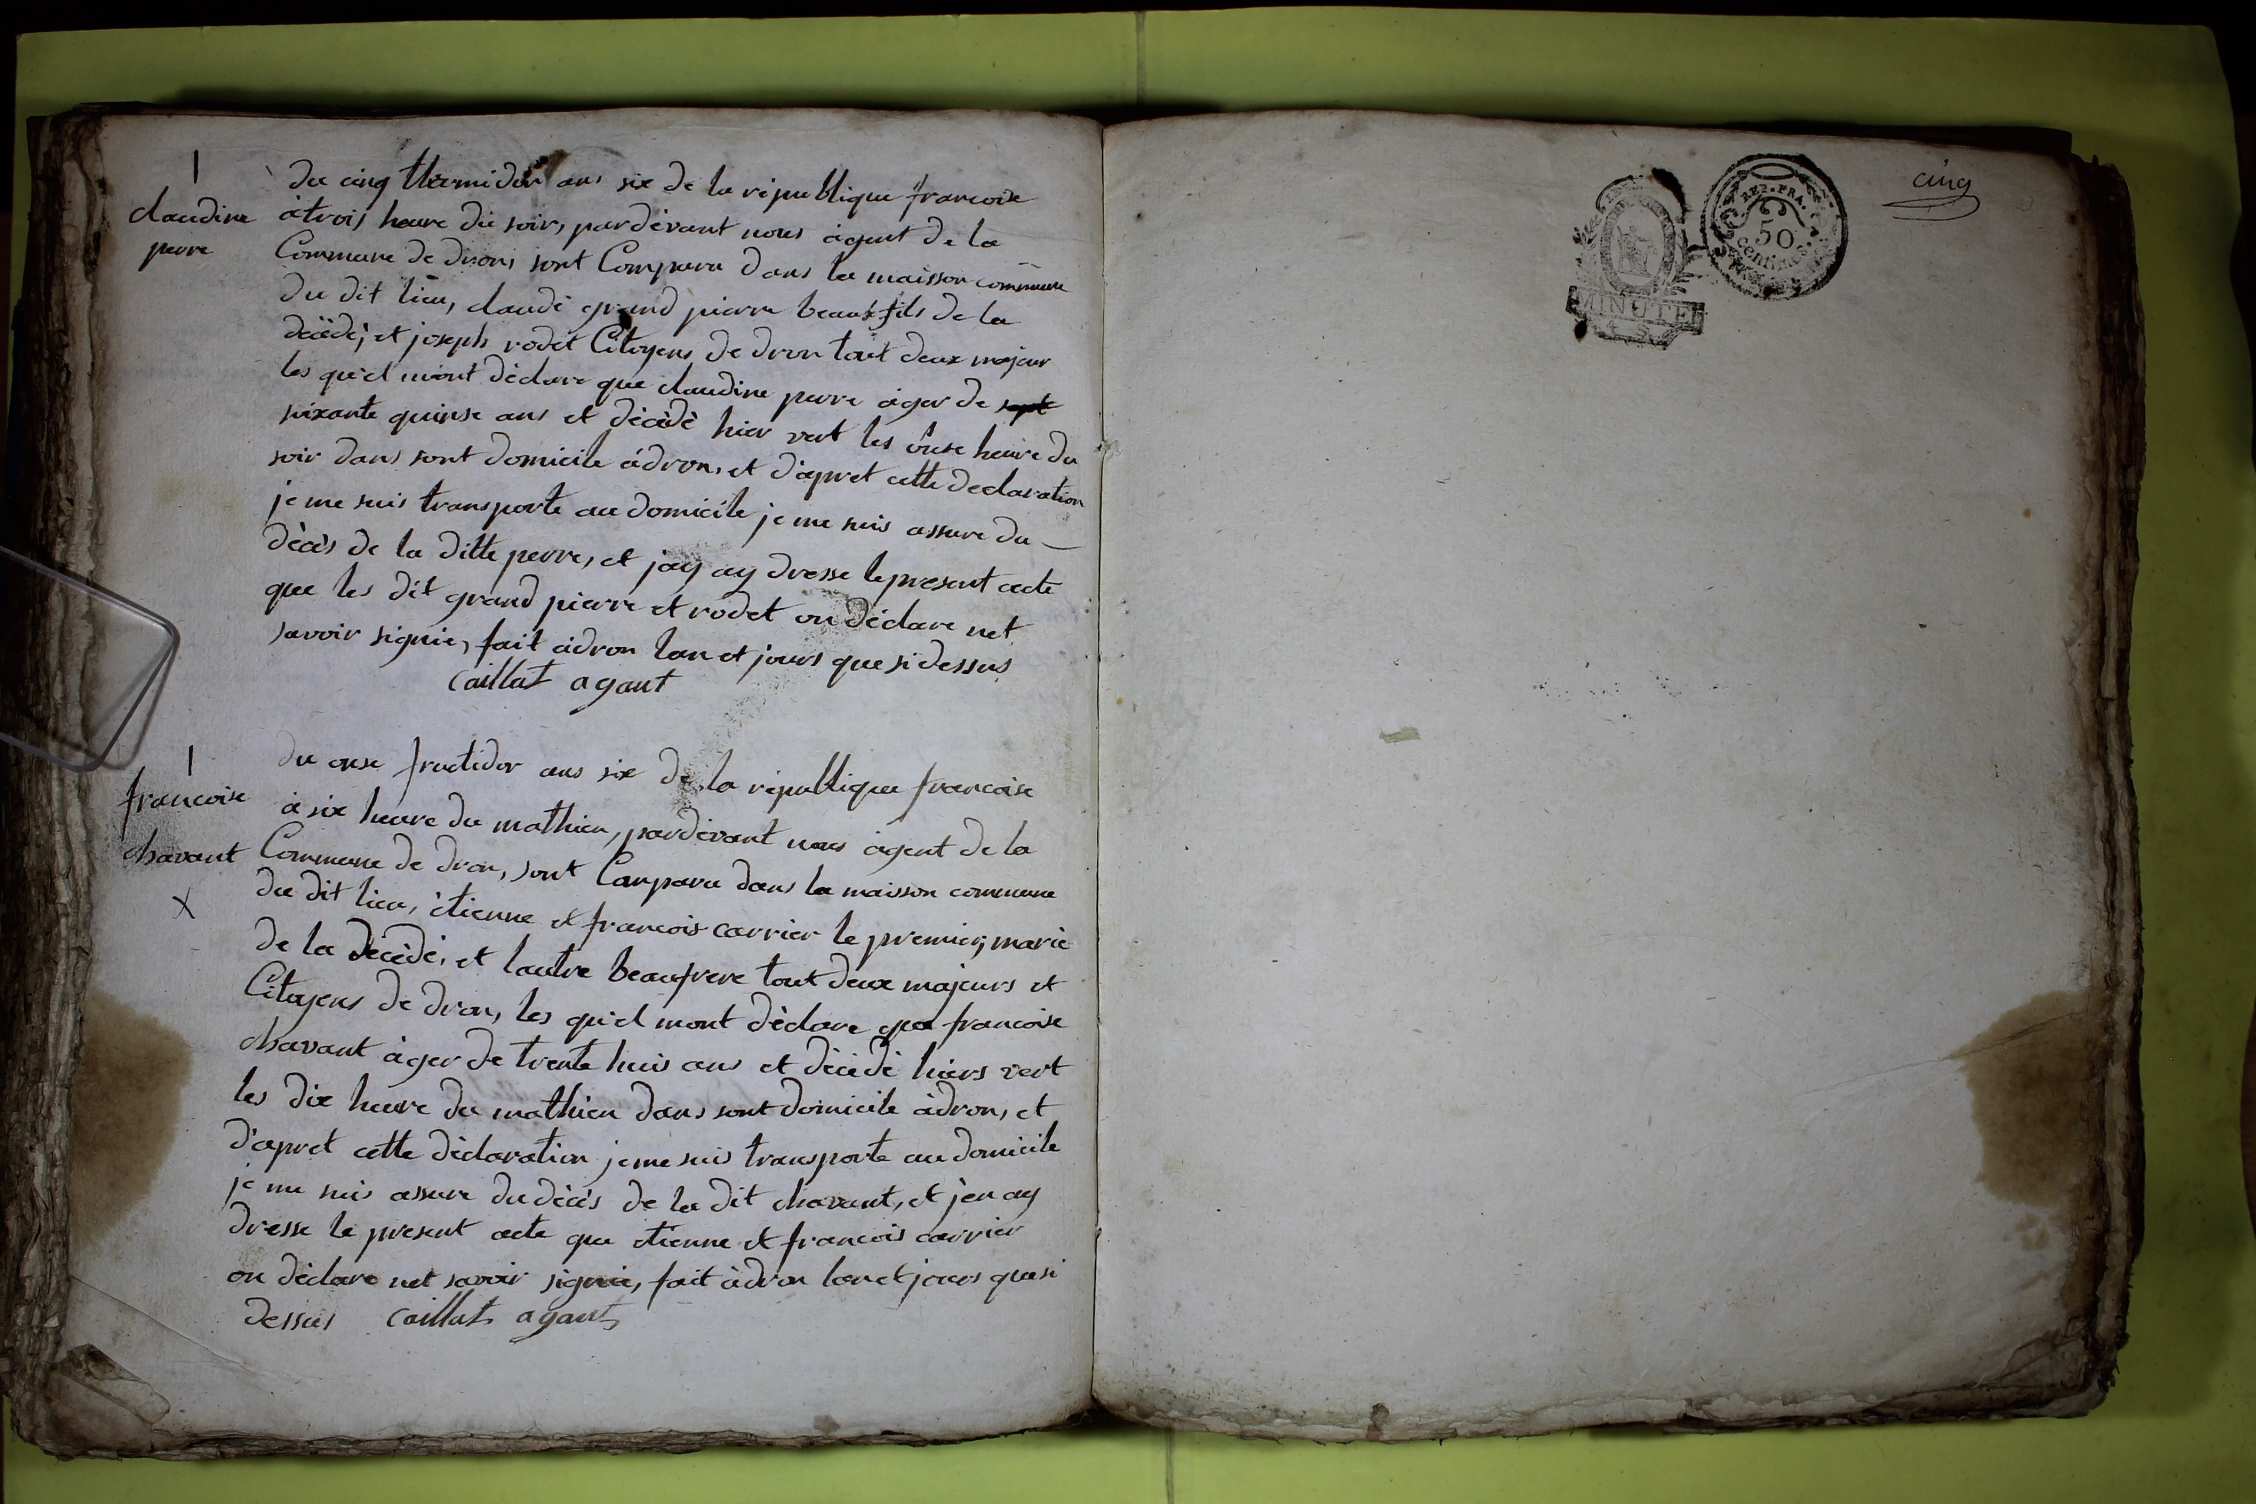 1
claudine
perre
du cinq thermidor ans six de la république francoise
à trois heure du soir, pardèvant nous àgent de la
Commune de dron, sont Comparu dans la maisson commune
du dit lieu, claude grand pierre beaux fils de la
dècèdè, et joseph rodet Citoyens de dron tout deux majeur
les qu'el mont dèclare que claudine perre àger de sept
soixante quinse ans et dècèdè hier vert les onse heure du
soir dans sont domicile àdron, et d'apret cette declaration
je me suis transporte au domicile je me suis assure du
dècès de la ditte perre, et jay ay dresse le present acte
que les dit grand pierre et rodet on dèclare net
savoir signie, fait àdron lan et jours que si dessus
Caillat agant
1
francoise
chavant
X
du onse fructidor ans six de la république francoise
à six heure du mathien, pardèvant nous àgent de la
Commune de dron, sont Comparu dans la maisson commune
du dit lieu, ètienne et francois carrier le premier, mariè
de la dècèdè, et lautre beaufrere tout deux majeurs et
Citoyens de dron, les qu'el mont dèclare que francoise
chavant àger de trente huis ans et dècèdè hiers vert
les dix heure du mathien dans sont domicile àdron, et
d'apret cette dèclaration je me suis transporte au domicile
je me suis assure du dècès de la dit chavant, et j'en ay
dresse le present acte que etienne et francois carrier
on dèclare net savoir signie, fait àdron lan et jours que si
dessus Caillat agant
cinq
REP. FRA.
50
centimes
MINUTE